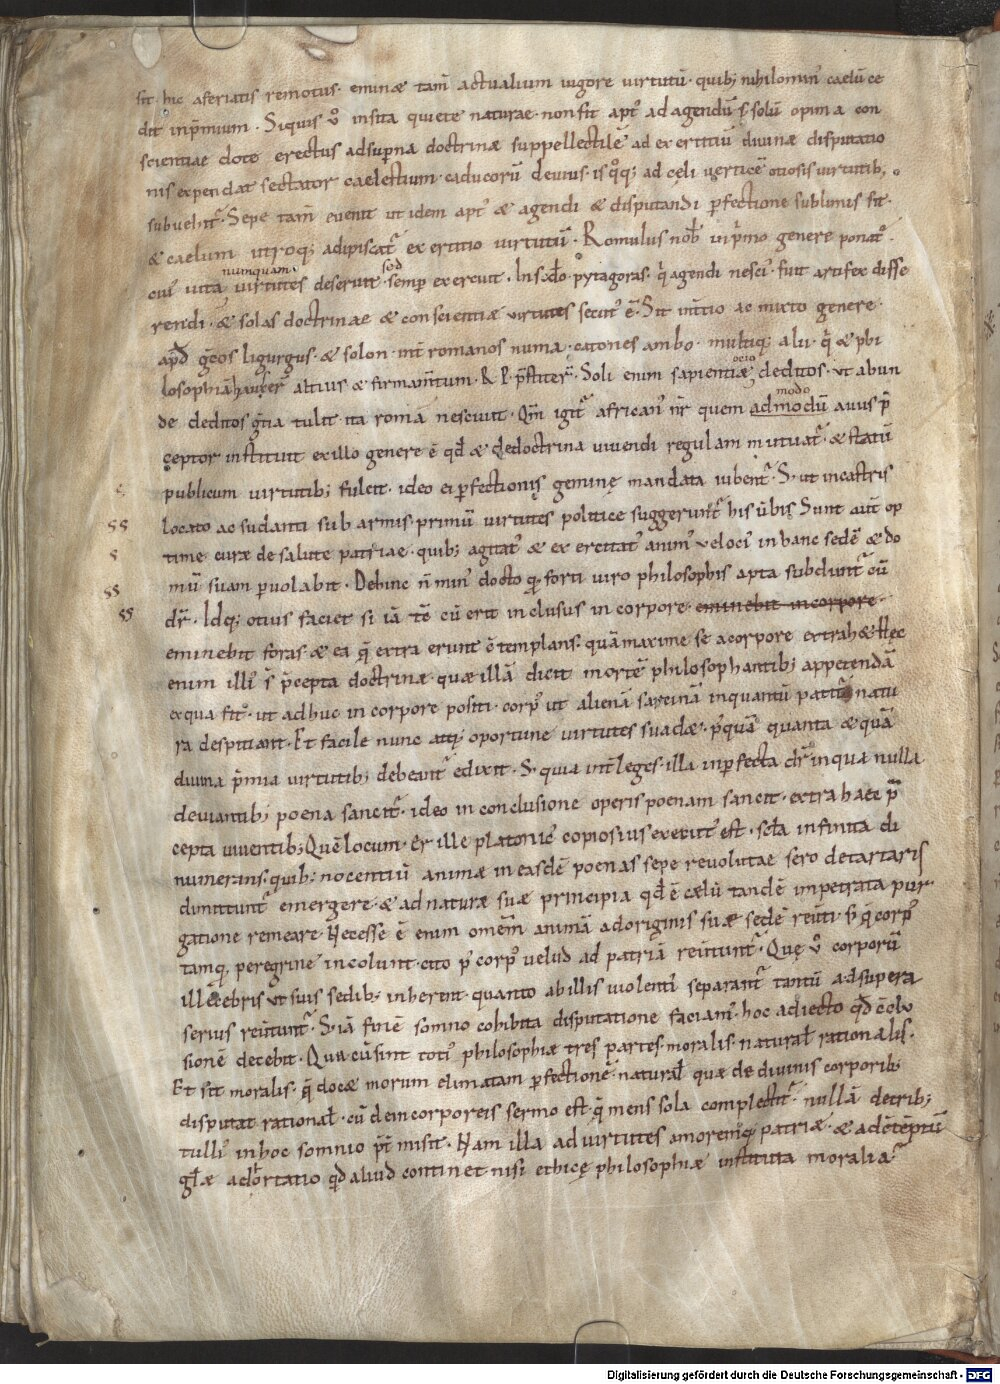 sit· hic aferiatis remotus· eminæ tam̄ actualium uigore uirtutū· quib; nihilomin᾽ caelū ce
dit in p̄mium· Siquis ů insita quiete naturae· non sit apt᾽ ad agendū s̄ solū opima con
scientiae dote erectus ad sup̄na doctrinæ suppellectilē ad exercitiū diuinæ disputatio
nis expendat sectator caelestium· caducorū deuius· is q̊q; ad cęli uerticē otiosis uirtutib;
subuehit᾽· Sepe tam̄ euenit ut idem apt᾽ & agendi & disputandi ꝑfectione sublimis sit·
& caelum utroq; adipiscat᾽ exercitio uirtutū· Romulus nob᾽ in p̄mo genere ponat᾽·
numquam sed
cui᾽ uita uirtutes deseruit semꝑ exercuit· In sc̄do pytagoras· q̄ agendi nesci᾽ fuit artifex disse
rendi· & solas doctrinae & conscientiæ uirtutes secut᾽ ē· Sit in t̄tio ac mixto genere·
apd̄ gc̄os ligurgus· & solon· int̄ romanos numa· catones ambo· multiq; alii· q̄ & phi
ocio
losophiā hauser̄ altius & firmam̄tum· R· P· p̄stiter̄· Soli enim sapientiæ deditos· ut abun
modo
de deditos gc̄ia tulit ita roma nesciuit· Qm̄ igit᾽ african᾽ nr̄ quem admodū auus p̄
ceptor instituit ex illo genere ē qd̄ & de doctrina uiuendi regulam mutuat᾽· & statū
publicum uirtutib; fulcit· ideo ei ꝑfectionis geminę mandata iubent᾽· S· ut in castris
SS
locato ac sudanti sub armis primū uirtutes politice suggerunt᾽ his ūbis Sunt aut̄ op
S
time curæ de salute patriae· quib; agitat᾽ & exercitat᾽ anim᾽ uelocius in hanc sedē & do
SS
mū suam ꝑuolabit· Dehinc n̄ min᾽ docto q̄ forti uiro philosophis apta subdunt᾽ cū
SS
dr̄· Idq; otius faciet si iā tc̄ cū erit inclusus in corpore· eminebit in corpore·
eminebit foras· & ea q̄ extra erunt c̄templans· quā maxime se a corpore extrah& Hęc
enim illi᾽ s̄ p̄cepta doctrinæ· quæ illā dicit mortē philosophantib; appetendā
ex qua fit᾽· ut adhuc in corpore positi· corp᾽ ut alienā sarcinā inquantū patit᾽ natu
ra despiciant· Et facile nunc atq; oportune uirtutes suadæ· p᾽quā quanta & quā
diuina p̄mia uirtutib; debeant᾽ edixit· S· quia int̄ leges· illa inꝑfecta dr̄ in qua nulla
deuiantib; poena sancit᾽· ideo in conclusione operis poenam sancit· extra haec p̄
cepta uiuentib; Quē locum· Er ille platonic᾽ copiosius executus est· scła infinita di
numerans· quib; nocentiū animæ in easdē poenas sepe reuolutae sero de tartaris
dimittunt᾽ emergere· & ad naturæ suæ principia qd̄ ē cælū tandē impetrata pur
gatione remeare· Necesse ē enim omēm animā ad originis suæ sedē reūti· s̄ q̄ corp᾽
tamq; peregrine incolunt· cito p᾽ corp᾽ uelud ad patriā reūtunt᾽· Quę ů corporū
illecebris ut suis sedib; inherent· quanto ab illis uiolenti᾽ separant᾽ tantū ad supera
serius reūtunt᾽· S· iā finē somno cohibita disputatione faciam᾽· hoc adiecto qd̄ c̄clu
sionē decebit· Quia cū sint toti᾽ philosophiæ tres partes· moralis· naturał rationalis·
Et sit moralis· q̄ docæ morum elimatam ꝑfectionē· naturał quæ de diuinis corporib;
disputat rationał· cū de incorporeis sermo est· q̄ mens sola complectit᾽· nullā de trib;
tulli᾽ in hoc somnio p̄t̄misit· Nam illa ad uirtutes amoremq; patriæ· & ad c̄tēptū
głæ adhortatio qd̄ aliud continet nisi ethicę philosophiæ instituta moralia